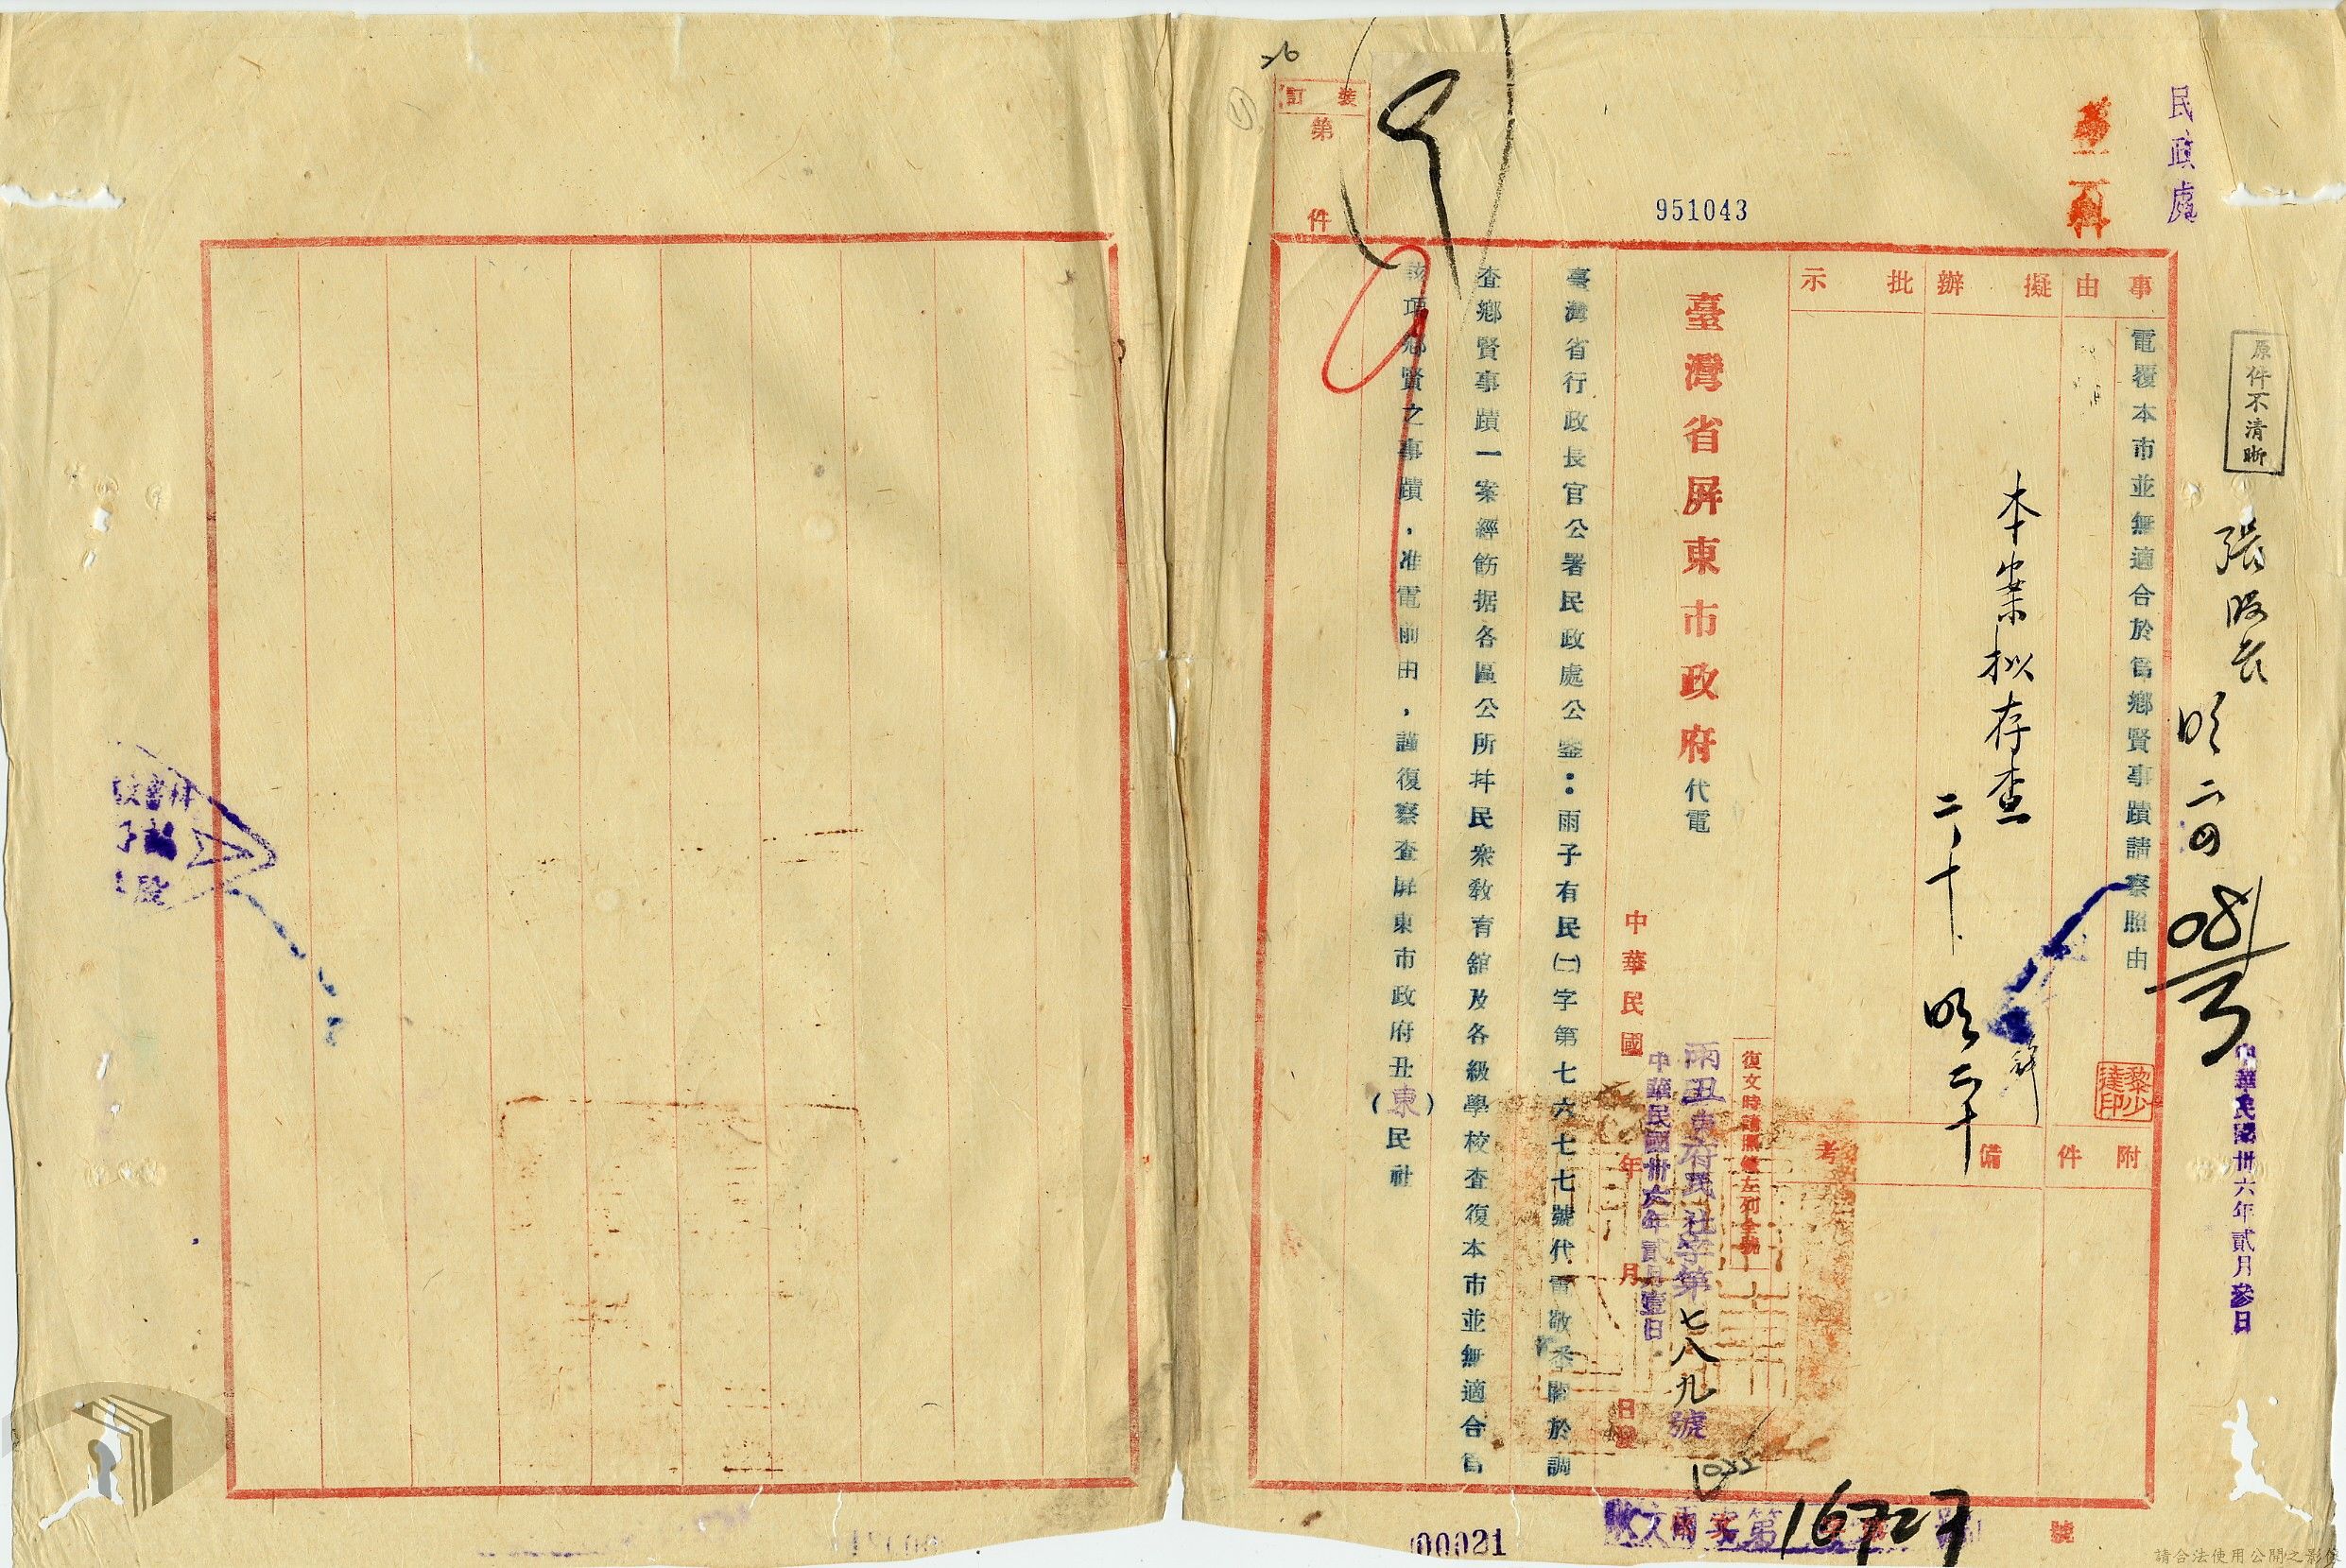 民政處
第二科
原件不清晰
張股長
中華民國卅六年貳月參日
事由
電覆本市並無適合於為鄉賢事蹟請察照由
附件
擬辦
本案擬存查
二、十
批示
備考
黎少達印
951043
臺灣省屏東市政府代電
復文時請照錄左列全號
丑東府民社字第七八九號
中華民國 年 月 日發
中華民國卅六年貳月壹日
臺灣省行政長官公署民政處公鑒：雨子有民㈡字第七六七七號代電敬悉關於調
查鄉賢事蹟一案經飭据各區公所并民衆教育舘及各級學校查復本市並無適合為
該項鄉賢之事蹟，准電前由，謹復察查屏東市政府丑（東）民社
裝訂
第 件
收文 字第16727號
00021
請合法使用公開之影像